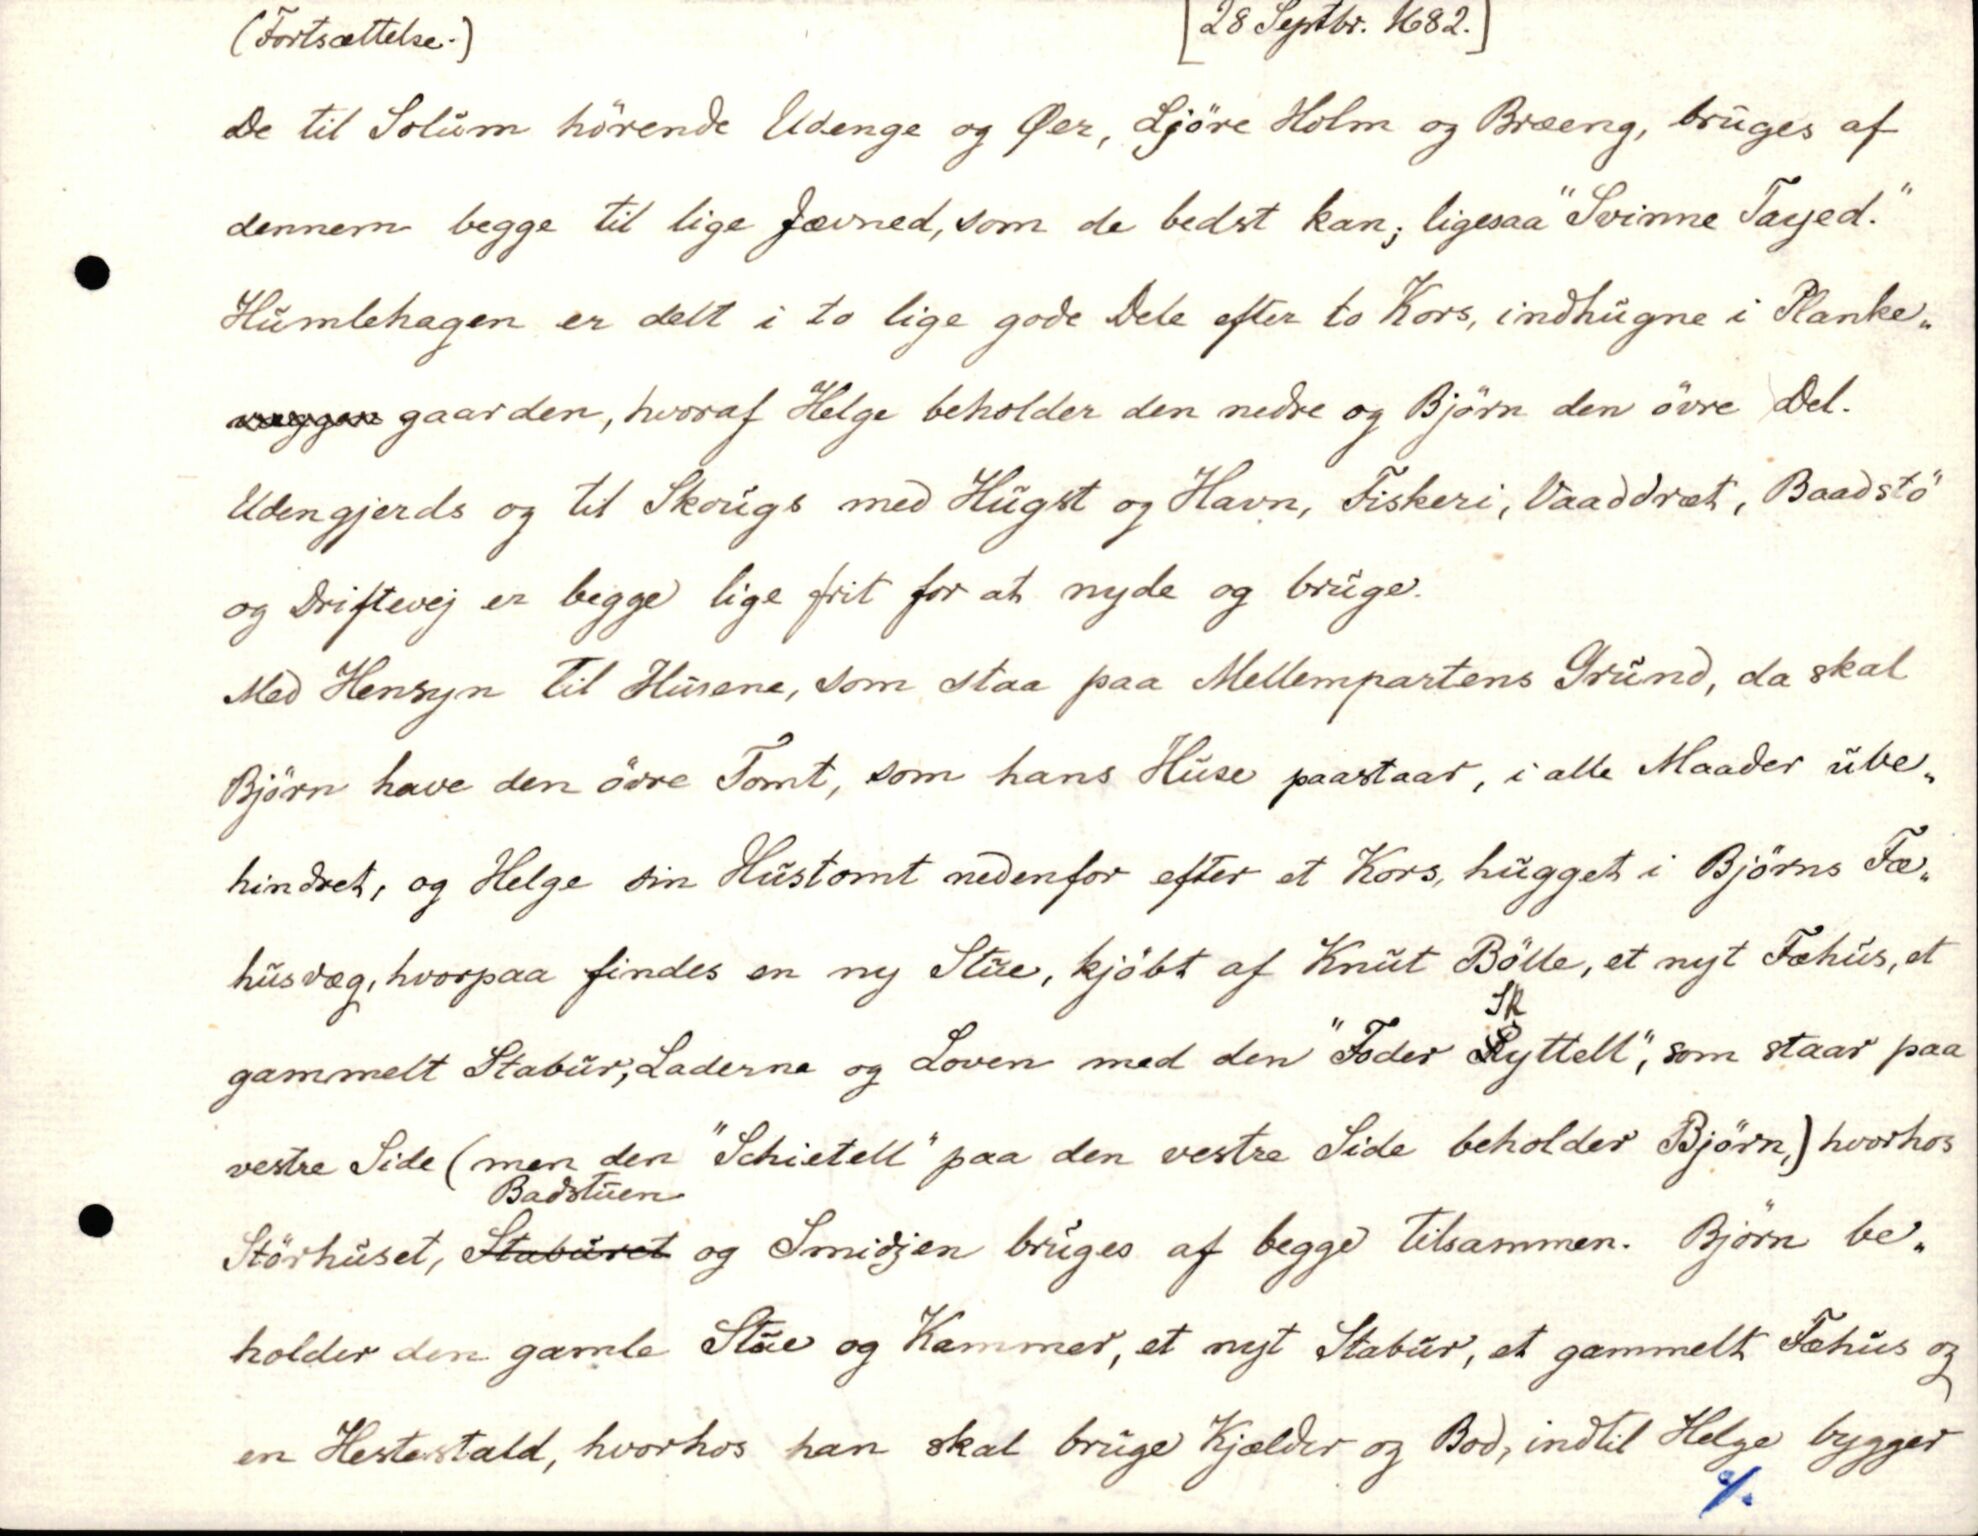 (Fortsættelse.) [28 Septbr. 1682.]
De til Solum hörende Udenge og Øer, Ljöre Holm og Bræeng, bruges af
dennem begge til lige Jævned, som de bedst kan; ligesaa "Svinne Tayed."
Humlehagen er delt i to lige gode Dele efter to Kors, indhugne i Planke„
gaarden, hvoraf Helge beholder den nedre og Björn den övre Del.
Udengjerds og til Skougs med Hugst og Havn, Fiskeri, Vaaddræt, Baadstö
og Driftevej er begge lige frit for at nyde og bruge.
Med Hensyn til Husene, som staa paa Mellempartens Grund, da skal
Björn have den övre Tomt, som hans Huse paastaar, i alle Maader ube„
hindret, og Helge sin Hustomt nedenfor efter et Kors, hugget i Björns Fæ„
husvæg, hvorpaa findes en ny Stue, kjöbt af Knut Bölle, et nyt Fæhus, et
Sk
gammelt Stabur, Laderne og Loven med den "Foder Ryttell", som staar paa
vestre Side (men den "Schietell" paa den vestre Side beholder Björn,) hvorhos
Badstuen
Störhuset, Staburet og Smidjen bruges af begge tilsammen. Björn be„
holder den gamle Stue og Kammer, et nyt Stabur, et gammelt Fæhus og
en Hestestald, hvorhos han skal bruge Kjælder og Bod, indtil Helge bygger